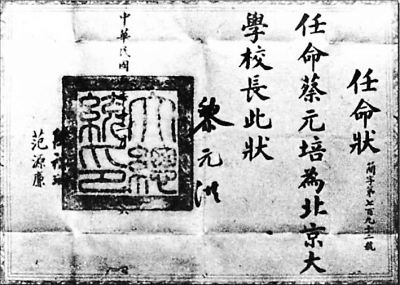 任命狀
簡字第七百九十二號
任命蔡元培為北京大
學校長此狀
黎元洪
大總
統印
中華民國
范源廉